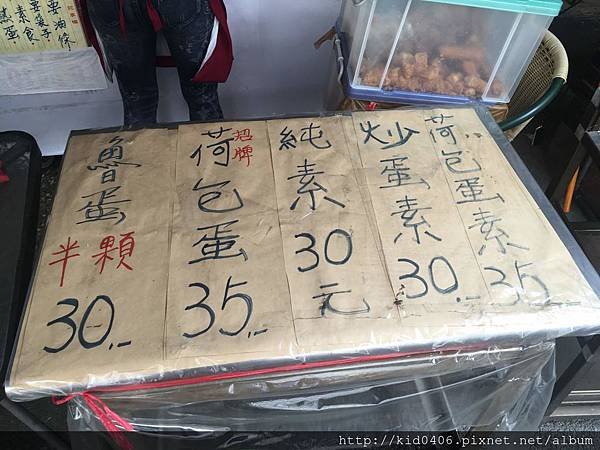 魯蛋
半顆
30.-
招牌
荷包蛋
35.-
純素
30
元
炒蛋素
30.-
荷包蛋素
35.-
http://kid0406.pixnet.net/album